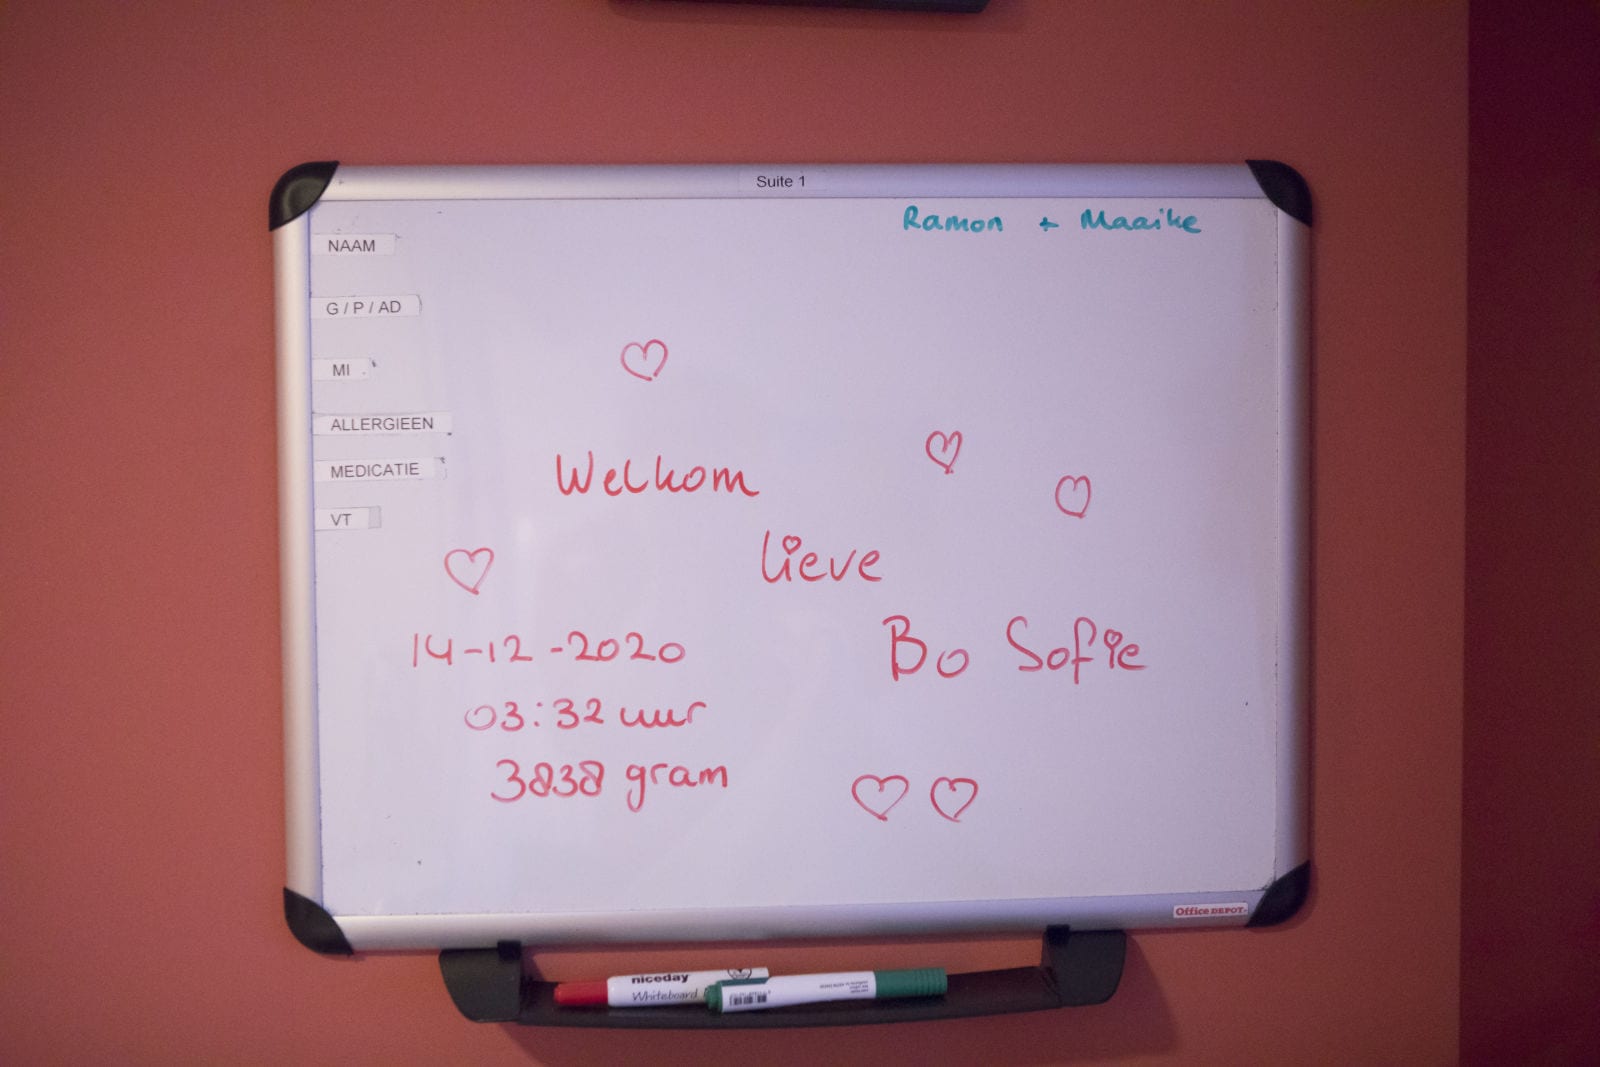 Suite 1
Ramon + Maaike
NAAM
G / P / AD
MI
ALLERGIEEN
MEDICATIE
VT
Welkom
lieve
Bo Sofie
14-12-2020
03:32 uur
3838 gram
Office DEPOT
niceday
Whiteboard